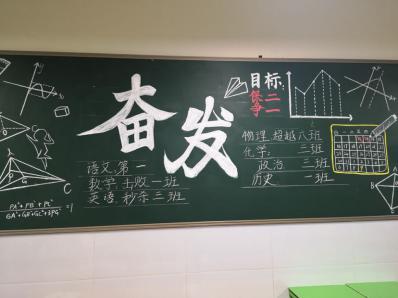 奋发
目标:
保二
争一
语文:第一
数学:击败一班
英语:秒杀三班
物理:超越八班
化学: 三班
政治: 三班
历史: 一班
C
PA²+PB²+PC²
GA²+GB²+GC²+3PG² =1